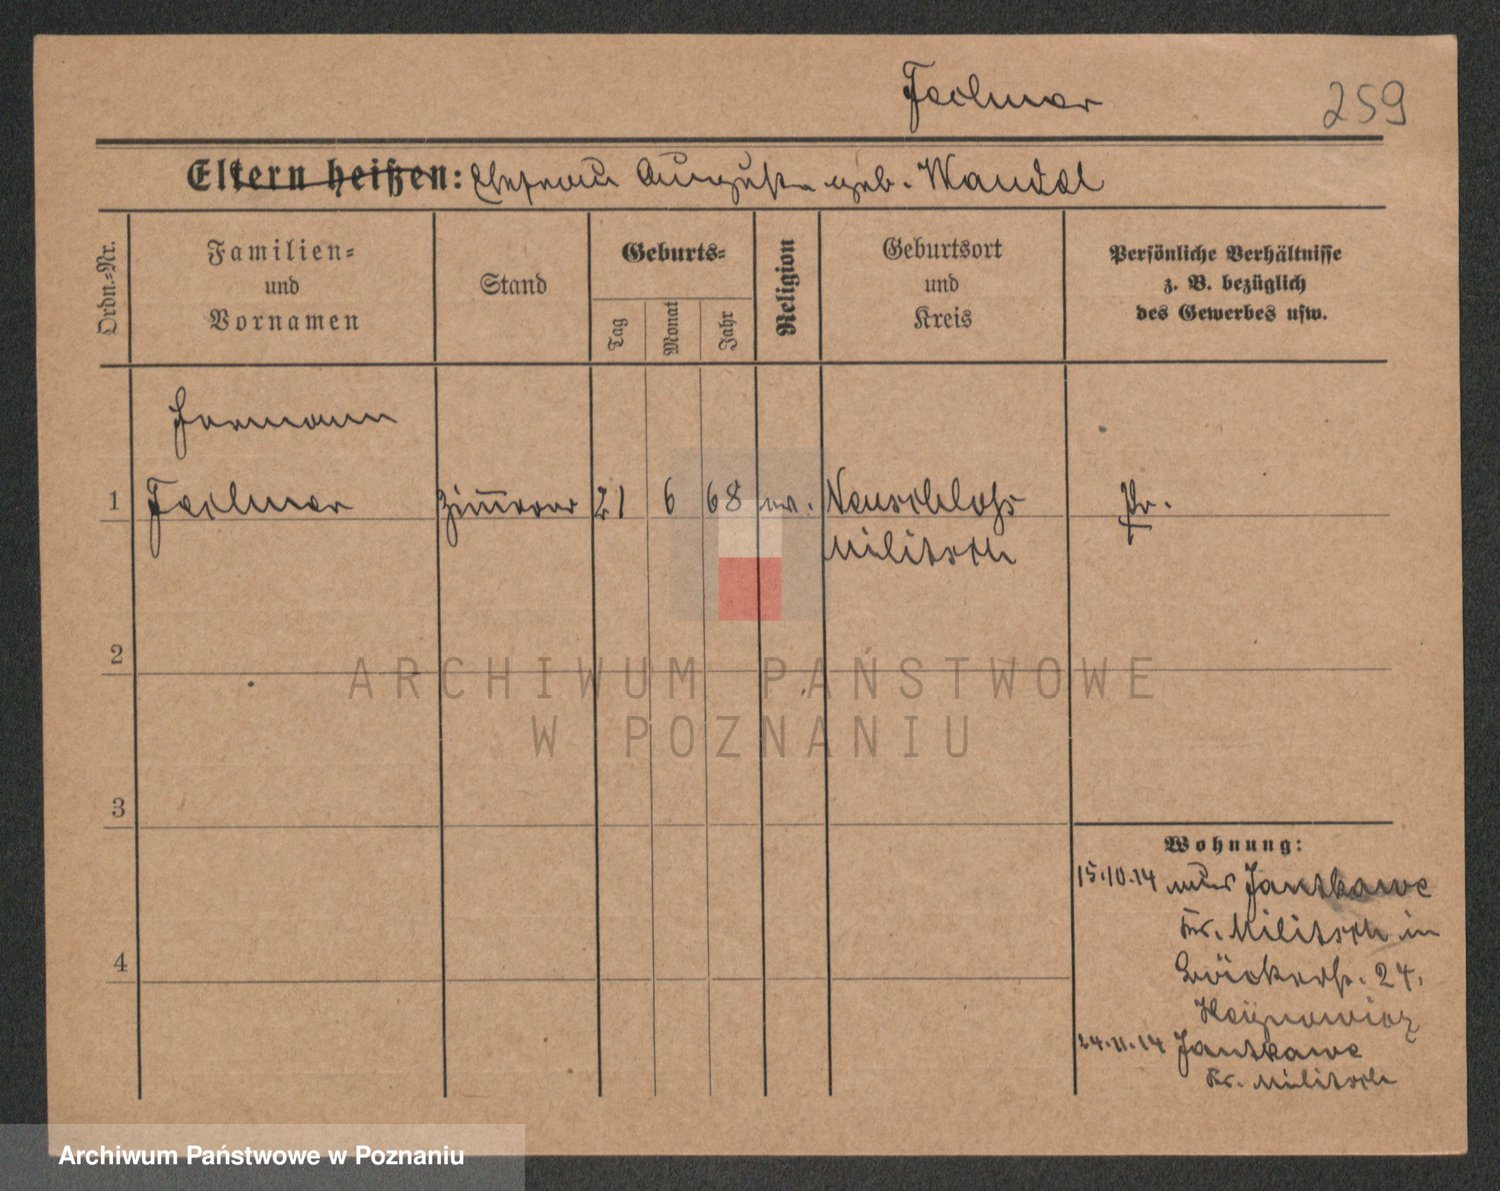 Feilmer
259
Eltern heißen: Ehefrau Auguste geb. Wandel
Ordn.-Nr.
Familien-
und
Vornamen
Stand
Geburts-
Tag
Monat
Jahr
Religion
Geburtsort
und
Kreis
Persönliche Verhältnisse
z. B. bezüglich
des Gewerbes usw.
Hermann
1 Feilmer Zimmerer 21 6 68 ev. Neuschloss Pr.
Militsch
2
3
4
Wohnung:
15.10.14 aus Jantkawe
Kr. Militsch in
Bäckerstr. 24.
24.11.14 Jantkawe
Kr. Militsch
ARCHIWUM PAŃSTWOWE
W POZNANIU
Archiwum Państwowe w Poznaniu